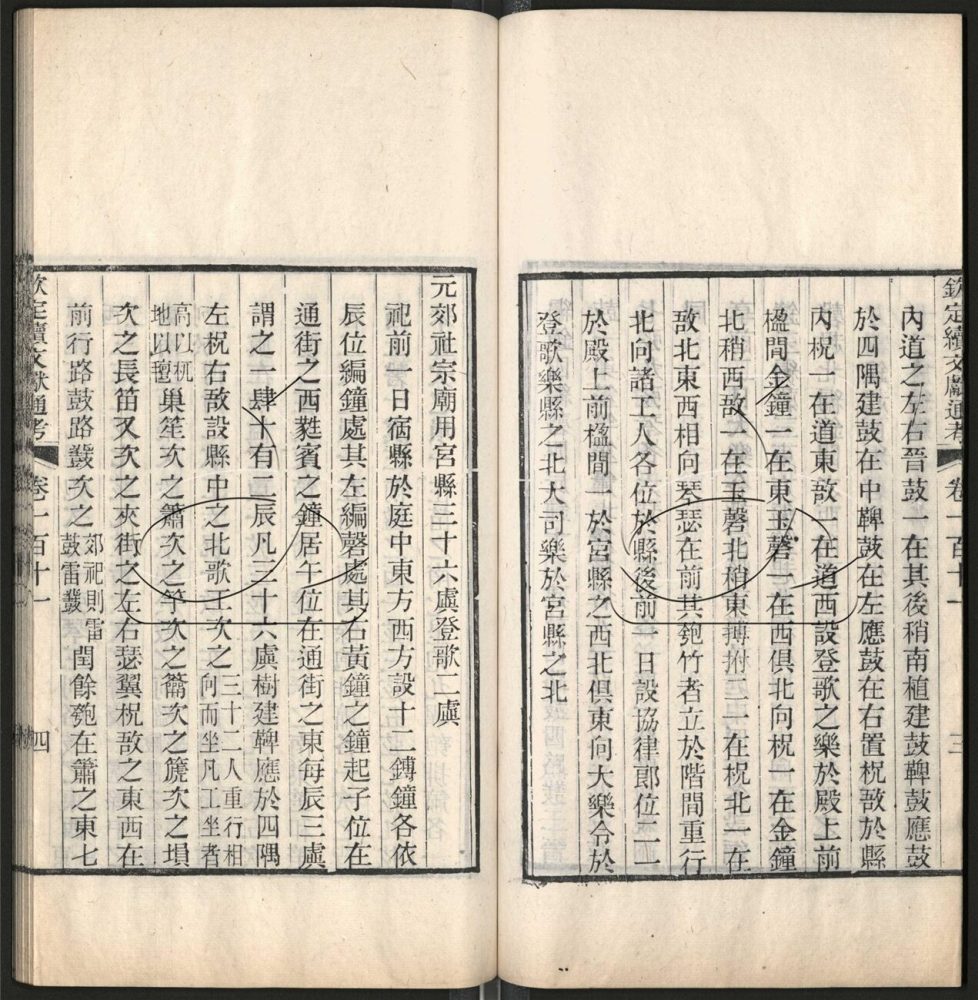 欽定續文獻通考 卷一百十一 三
內道之左右晉鼓一在其後稍南植建鼓鞞鼓應鼓
於四隅建鼓在中鞞鼓在左應鼓在右置柷敔於縣
內柷一在道東敔一在道西設登歌之樂於殿上前
楹間金鐘一在東玉磬一在西俱北向柷一在金鐘
北稍西敔一在玉磬北稍東搏拊二一在柷北一在
敔北東西相向琴瑟在前其匏竹者立於階間重行
北向諸工人各位於縣後前一日設協律郎位二一
於殿上前楹間一於宮縣之西北俱東向大樂令於
登歌樂縣之北大司樂於宮縣之北
元郊社宗廟用宮縣三十六虡登歌二虡
祀前一日宿縣於庭中東方西方設十二鎛鐘各依
辰位編鐘處其左編磬處其右黃鐘之鐘起子位在
通街之西蕤賓之鐘居午位在通街之東每辰三虡
謂之一肆十有二辰凡三十六虡樹建鞞應於四隅
左柷右敔設縣中之北歌工次之三十二人重行相向而坐凡工坐者
高以杌地以氊巢笙次之簫次之竽次之籥次之篪次之塤
次之長笛又次之夾街之左右瑟翼柷敔之東西在
前行路鼓路鼗次之郊祀則雷鼓雷鼗閏餘匏在簫之東七
欽定續文獻通考 卷一百十一 四